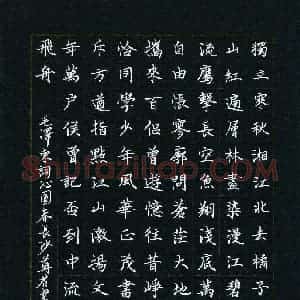 獨立寒秋湘江北去橘子
山紅遍層林盡染漫江碧
流鷹擊長空魚翔淺底萬
自由悵寥廓問蒼茫大地
攜來百侶曾遊憶往昔崢
恰同學少年風華正茂書
斥方遒指點江山激揚文
年萬戶侯曾記否到中流
飛舟
毛澤東詞沁園春長沙